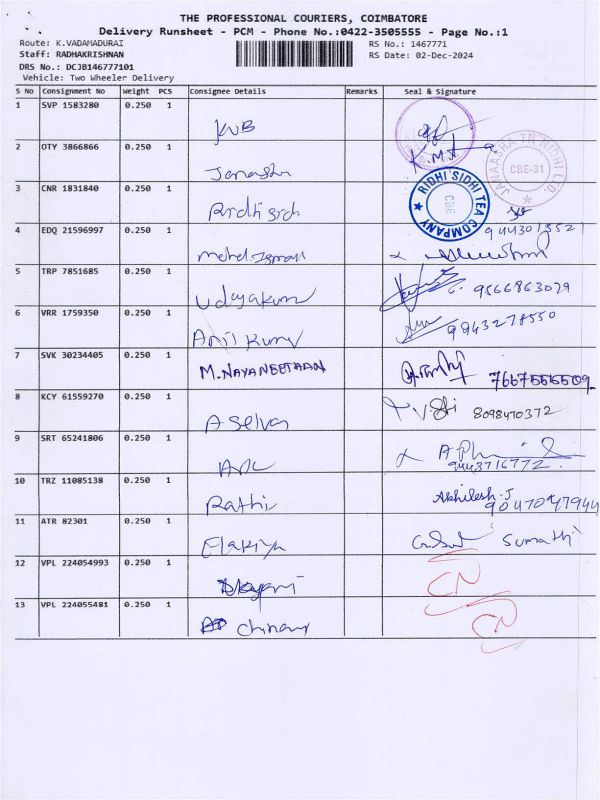 THE PROFESSIONAL COURIERS, COIMBATORE
Delivery Runsheet - PCM - Phone No.:0422-3505555 - Page No.:1
Route: K.VADAMADURAI RS No.: 1467771
Staff: RADHAKRISHNAN RS Date: 02-Dec-2024
DRS No.: DCJB146777101
Vehicle: Two Wheeler Delivery
S No Consignment No Weight PCS Consignee Details Remarks Seal & Signature
1 SVP 1583280 0.250 1
KVB
2 OTY 3866866 0.250 1 K.M.
JANAADHA TN NIDHI LTD. CBE-31
3 CNR 1831840 0.250 1
RIDHI SIDHI TEA COMPANY CBE
4 EDQ 21596997 0.250 1 9443013521
5 TRP 7851685 0.250 1
Udayakum 9566863029
6 VRR 1759350 0.250 1 9943278550
Anil Kumr
7 SVK 30234405 0.250 1
M.NAYANEETHAAN 7667566509
8 KCY 61559270 0.250 1 8098470372
A Selva
9 SRT 65241806 0.250 1
9443716772
10 TRZ 11085138 0.250 1 Akhilesh.J
Rathi 9047047944
11 ATR 82301 0.250 1 Sumathi
Elakiya
12 VPL 224054993 0.250 1 CN
13 VPL 224055481 0.250 1 CN